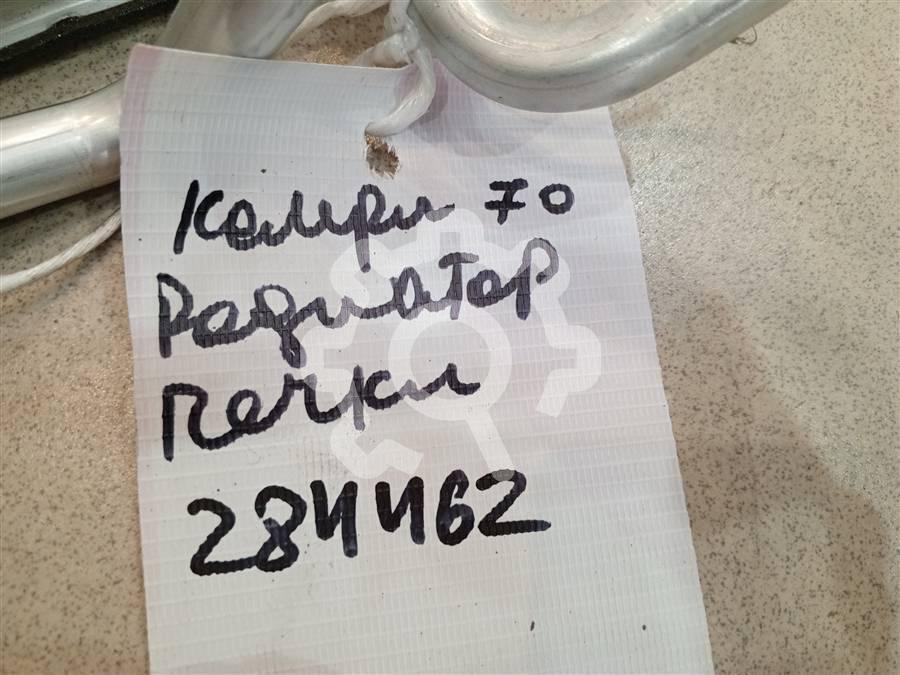 Камри 70
Радиатор
печки
284462